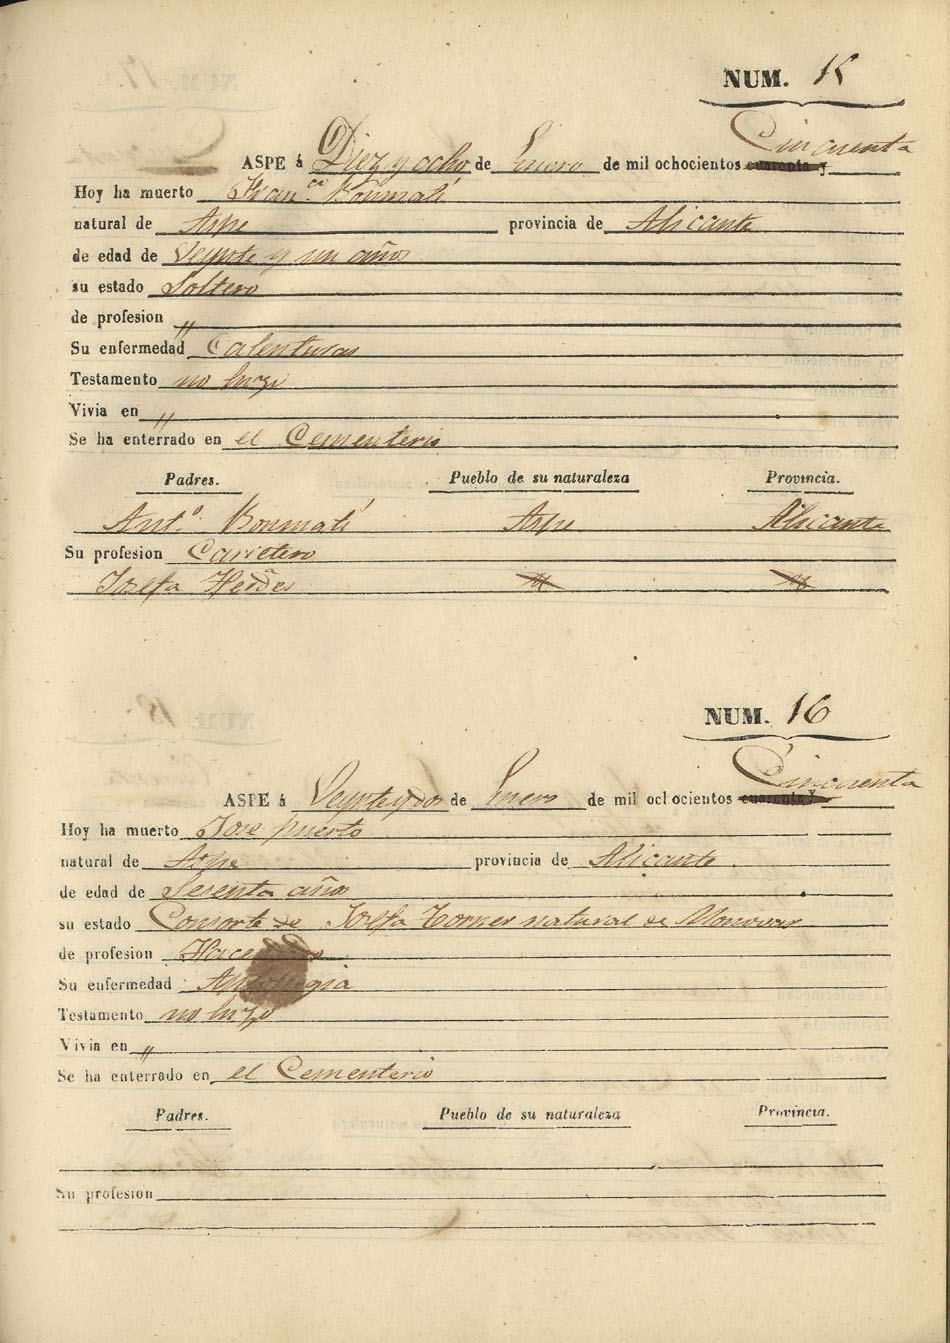 NUM. 15
ASPE á Diez y ocho de Enero de mil ochocientos cuarenta y Cincuenta
Hoy ha muerto Fran.ca Boumatí
natural de Aspe provincia de Alicante
de edad de Veynte y un años
su estado Soltero
de profesion "
Su enfermedad Calenturas
Testamento no hizo
Vivia en "
Se ha enterrado en el Cementerio
Padres. Pueblo de su naturaleza Provincia.
Ant.o Boumatí Aspe Alicante
Su profesion Carretero
Josefa "  "
NUM. 16
ASPE á Veynteydos de Enero de mil ochocientos cuarenta y Cincuenta
Hoy ha muerto Jose Puerto
natural de Aspe provincia de Alicante
de edad de Sesenta años
su estado Consorte de Josefa natural de Monovar
de profesion
Su enfermedad
Testamento no hizo
Vivia en "
Se ha enterrado en el Cementerio
Padres. Pueblo de su naturaleza Provincia.
Su profesion